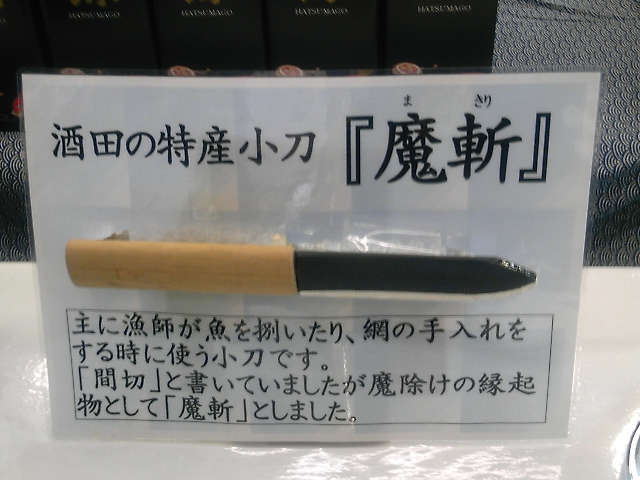 HATSUMAGO
HATSUMAGO
HATSUMAGO
HATSUMAGO
ま きり
酒田の特産小刀『魔斬』
主に漁師が魚を捌いたり、網の手入れを
する時に使う小刀です。
「間切」と書いていましたが魔除けの縁起
物として「魔斬」としました。